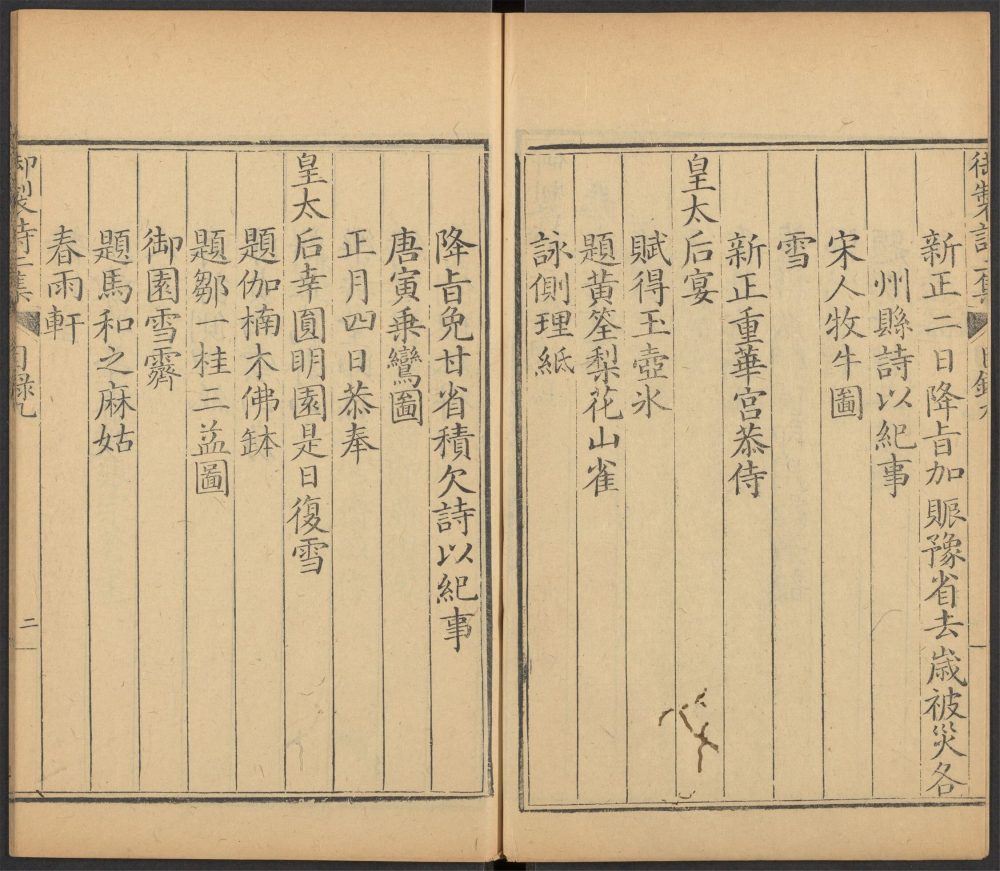 御製詩二集 目錄九 一
新正二日降旨加賑豫省去歲被災各
州縣詩以紀事
宋人牧牛圖
雪
新正重華宮恭侍
皇太后宴
賦得玉壺冰
題黃筌梨花山雀
詠側理紙
降旨免甘省積欠詩以紀事
唐寅乗鸞圖
正月四日恭奉
皇太后幸圓明園是日復雪
題伽楠木佛鉢
題鄒一桂三益圖
御園雪霽
題馬和之麻姑
春雨軒
御製詩二集 目錄九 二